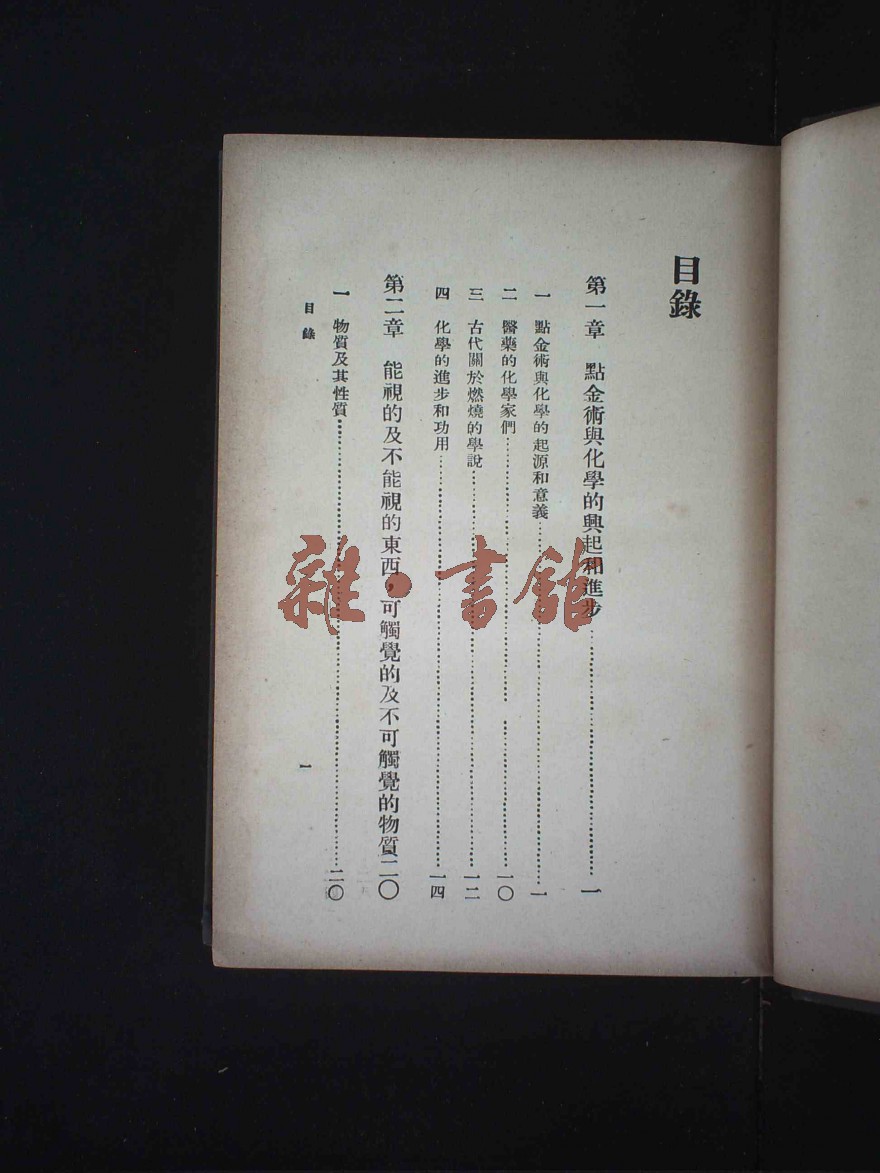 目錄
第一章　點金術與化學的興起和進步……一
一　點金術與化學的起源和意義……一
二　醫藥的化學家們……一〇
三　古代關於燃燒的學說……一二
四　化學的進步和功用……一四
第二章　能視的及不能視的東西，可觸覺的及不可觸覺的物質二〇
一　物質及其性質……二〇
目錄
一
雜·書館